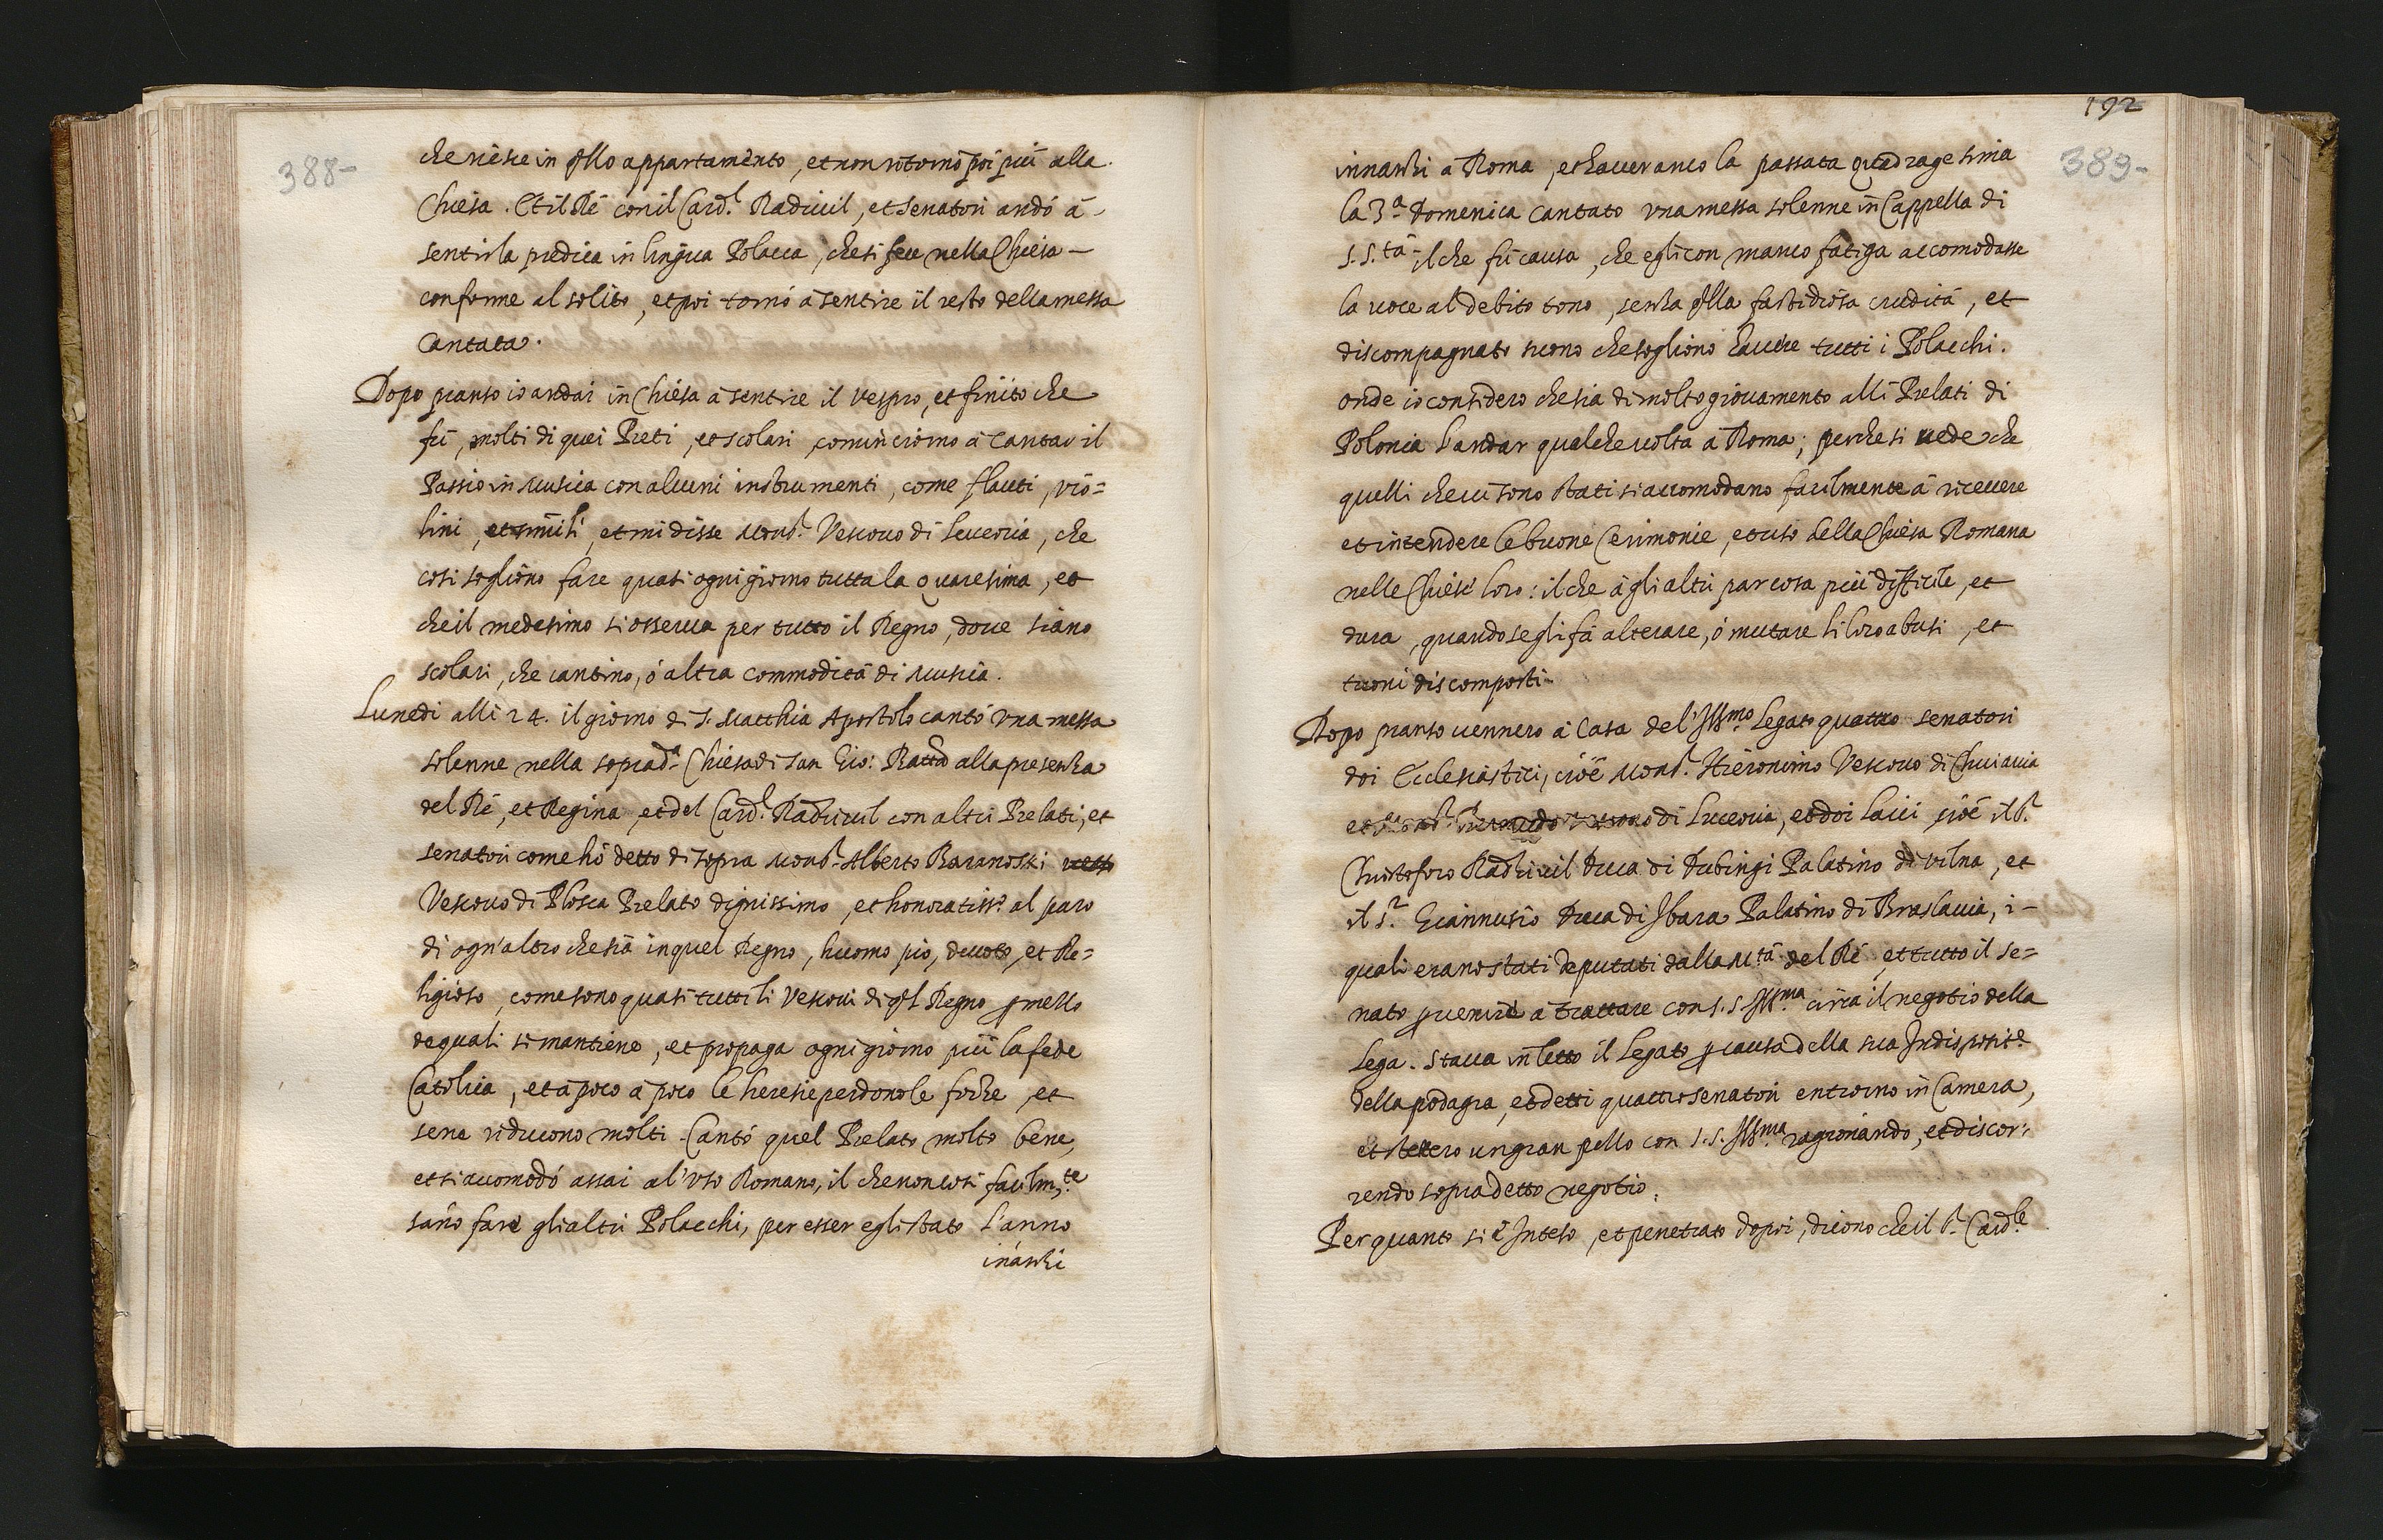 388-
che riesce in qllo appartamẽto, et non ritornò poi più alla
Chiesa. Et il Rè con il Card.l Radiuil, et Senatori andò à
sentir la predica in lingua Polacca, che si fece nella Chiesa –
conforme al solito, et poi tornò à sentire il resto della messa
Cantata.
Dopo pranso io andai in Chiesa à sentire il Vespro, et finito che
fù, molti di quei Preti, et scolari cominciorno à Cantar il
Passio in Musica con alcuni instrumenti, come flauti, vio=
lini, et simili, et mi disse Mons.r Vescouo di Luceoria, che
cosi sogliono fare quasi ogni giorno tutta la Quaresima, et
che il medesimo si osserua per tutto il Regno, doue siano
scolari, che cantino, ò altra commodità di Musica.
Lunedi alli 24. il giorno di S. Matthia Apostolo cantò vna messa
solenne nella soprad.a Chiesa di San Gio: Batta alla presenza
del Rè, et Regina, et del Card.l Radziuil con altri Prelati, et
senatori come hò detto di sopra Mons.r Alberto Baranoski
Vescouo di Plosca Prelato dignissimo, et honoratiss.o al paro
di ogn'altro che sia in quel Regno, huomo pio, deuoto, et Re=
ligioso, come sono quasi tutti li Vescoui di ql Regno p mezzo
de quali si mantiene, et propaga ogni giorno più la fede
Catolica, et à poco à poco le heresie perdono le forze, et
sene riducono molti. Cantò quel Prelato molto bene,
et si accomodò assai al'vso Romano, il che non cosi facilm.te
sãno fare gli altri Polacchi, per esser egli stato l'anno
inãzhi
192
389-
innanzi à Roma, et hauer anco la passata quadragesima
la 3.a Domenica Cantato vna messa solenne in Cappella di
S.S.tà il che fù causa, che egli con manco fatiga accomodasse
la uoce al debito tono, senza qlla fastidiosa crudità, et
discompagnato suono che sogliono hauere tutti i Polacchi.
onde io considero che sia di molto giouamento alli Prelati di
Polonia l'andar qualche uolta à Roma; perche si uede che
quelli che ui sono stati si accomodano facilmente à riceuere
et intendere le buone Cerimonie, et uso della Chiesa Romana
nelle Chiese loro: il che à gli altri par cosa più difficile, et
dura, quando se gli fà alterare, ò mutare li loro abusi, et
tuoni discomposti.
Dopo pranso uennero à Casa del'Ill.mo Legato quattro Senatori
doi Ecclesiastici, cioè Mons.r Hieronimo Vescouo di Cuiauia
et di Luceoria, et doi Laici cioè il S.r
Christoforo Radziuil Duca di Dubingi Palatino di Vilna, et
il S.r Giannusio Duca di Sbara Palatino di Braslauia, i –
quali erano stati deputati dalla M.tà del Rè et tutto il Se=
nato p uenire à trattare con S.S. Ill.ma circa il negotio della
Lega. Staua in letto il Legato p causa della sua Indispositi.e
della podagra, et detti quattro Senatori entrorno in Camera,
et stettero un gran pezzo con S.S. Ill.ma ragionando, et discor:
rendo sopra detto negotio.
Per quanto si è Inteso, et penetrato dopoi, dicono che il S.r Card.le